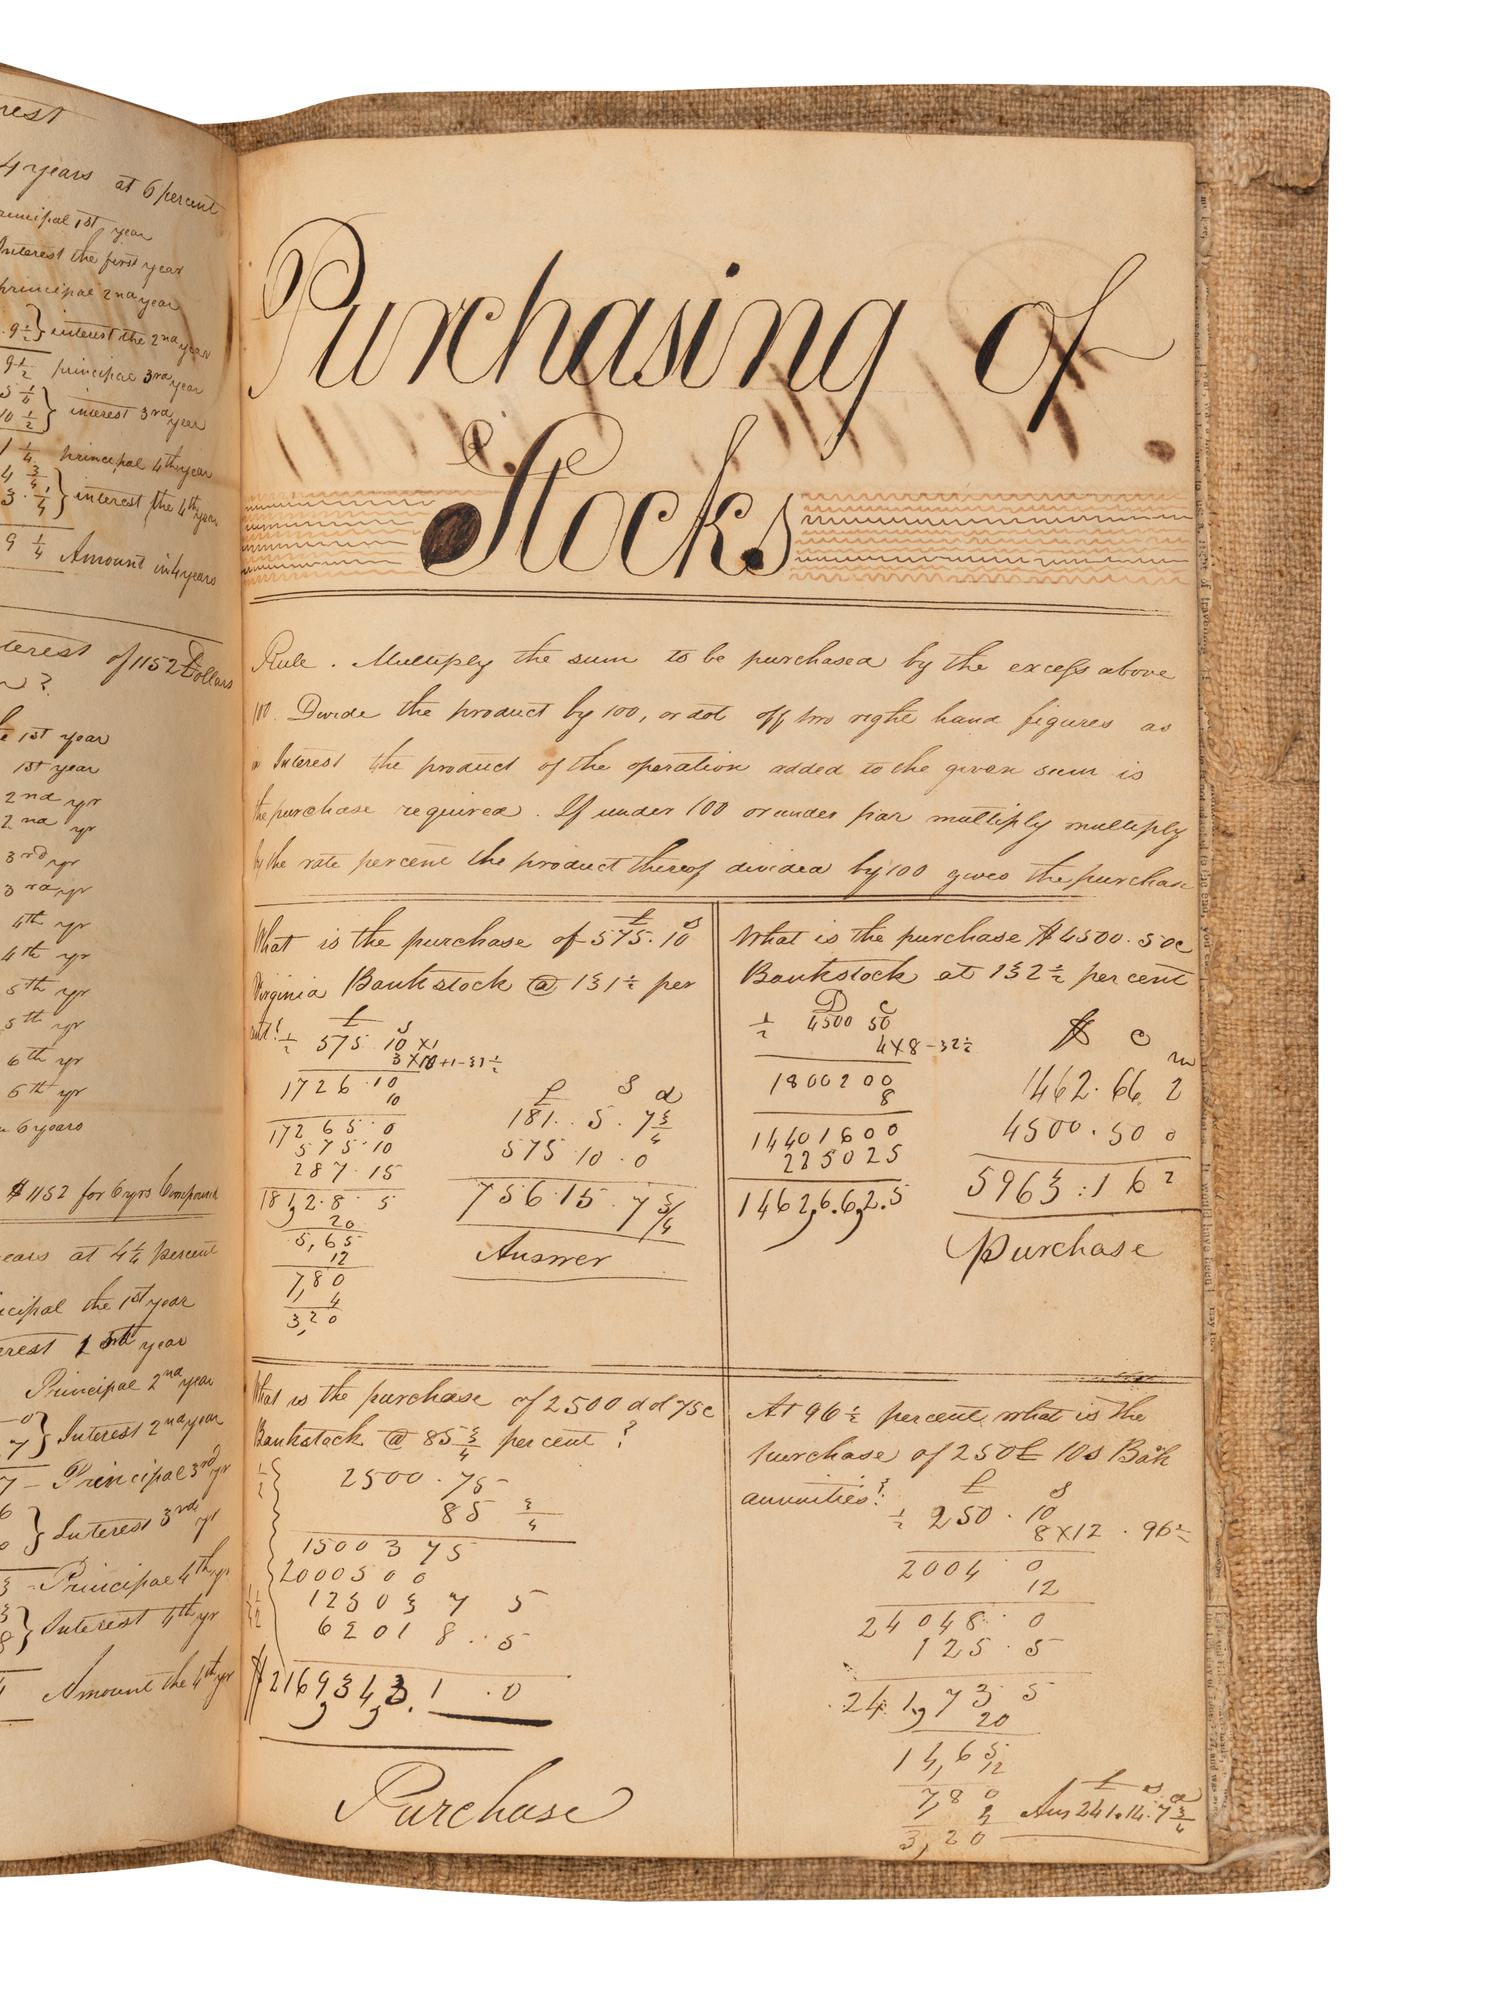 rest
4 years at 6 percent
principal 1st year
Interest the first year
principal 2nd year
9 1/2 } interest the 2nd year
9 1/2 principal 3rd year
5 1/4
10 1/2 } interest 3rd year
1 1/4 principal 4th year
4 3/4
3 . 1/4 } interest the 4th year
9 1/4 Amount in 4 years
terest of 1152 Dollars
1st year
1st year
2nd yr
2nd yr
3rd yr
3rd yr
4th yr
4th yr
5th yr
5th yr
6th yr
6th yr
6 years
$ 1152 for 6 yrs Compound
ears at 4 1/4 percent
ncipal the 1st year
erest 1 year
Principal 2nd year
0
7 } Interest 2nd year
7 – Principal 3rd yr
6
0 } Interest 3rd yr
3 – Principal 4th yr
3
8 } Interest 4th yr
Amount the 4th yr
Purchasing of
Stocks
Rule . Multiply the sum to be purchased by the excess above
100. Divide the product by 100, or dot off two right hand figures as
in Interest the product of the operation added to the given sum is
the purchase required . If under 100 or under par multiply multiply
by the rate percent the product thereof divided by 100 gives the purchase
What is the purchase of £575. 10 s
Virginia Bank stock @ 131 1/2 per
cent?
£ s
1/2 575 10 X1
3X10+1-31 1/2
1726.10
10
172 65.0
575.10
287.15
181,2.8 5
20
5,65
12
7,80
4
3,20
£ S d
181. . 5 . 7 3/4
575 10 . 0
756.15 . 7 3/4
Answer
What is the purchase $ 4500. 50c
Bankstock at 132 1/2 per cent
D C
1/2 4500 50
4X8-32 1/2
1800200
8
14401600
225025
1462,6.6,2.5
$ c m
1462. 66 2
4500. 50 0
5963 : 16 2
Purchase
What is the purchase of 2500 dd 75c
Bankstock @ 85 3/4 per cent ?
1/2 2500 . 75
85 3/4
1500 3 75
2000500
1250 3 7 5
6201 8 . 5
$ 2169,34,3. 1 . 0
Purchase
At 96 1/2 percent what is the
purchase of 250£ 10s Bak
annuities?
£ s
1/2 250 . 10
8X12 . 96 1/2
2004 0
12
24048 0
125 . 5
241,73 5
20
14,65
12
7,80
4
3,20
£ s d
Ans 241.14.7 3/4